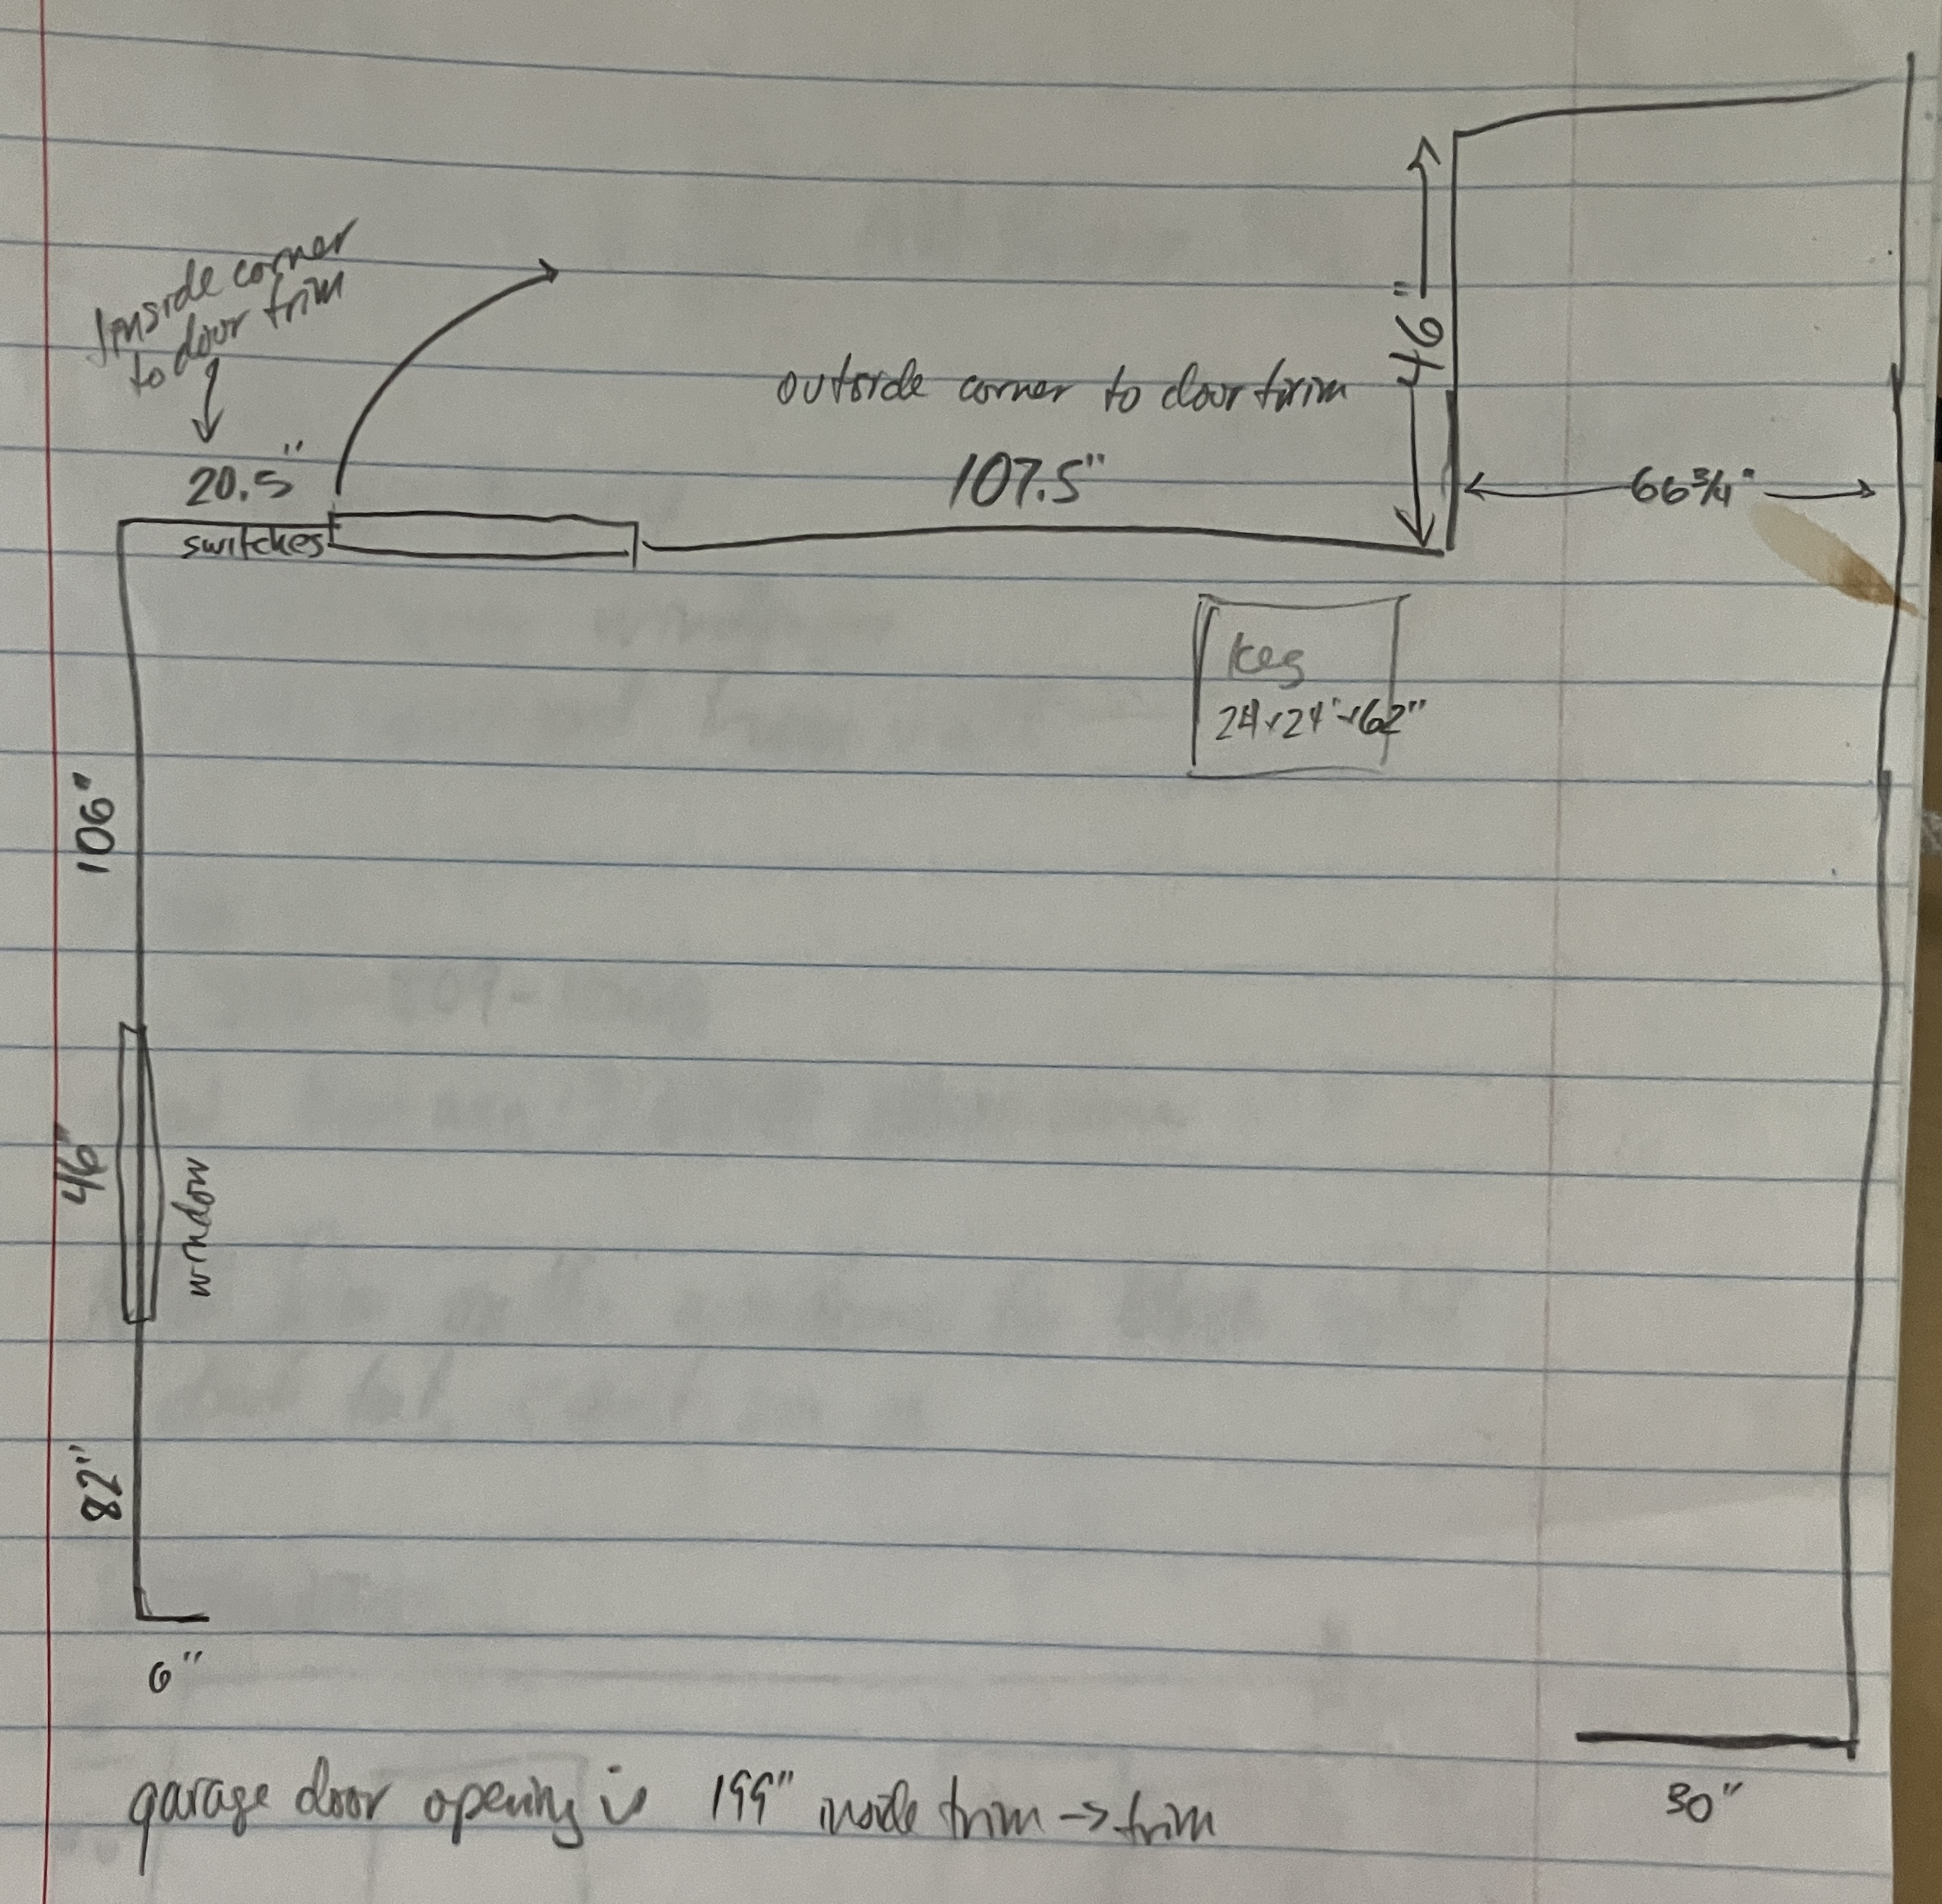 Inside corner
to door trim
20.5"
switches
outside corner to door trim
107.5"
46"
66 3/4"
Keg
24x24"x62"
106"
46"
window
82"
6"
garage door opening is 199" inside trim -> trim
30"